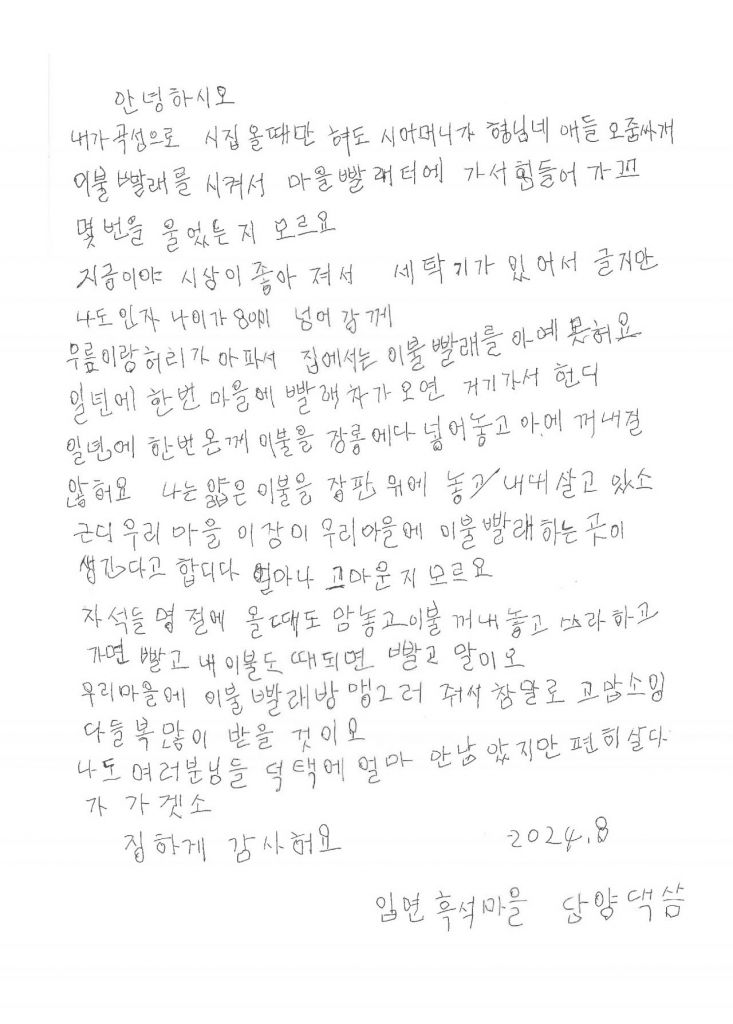 안녕하시오
내가 곡성으로 시집 올때만 혀도 시어머니가 형님네 애들 오줌싸게
이불 빨래를 시켜서 마을 빨래터에 가서 힘들어 가꼬
몇 번을 울었는지 모르요
지금이야 시상이 좋아 져서 세탁기가 있어서 글지만
나도 인자 나이가 80이 넘어 강께
무릎이랑 허리가 아파서 집에서는 이불 빨래를 아예 못혀요
일년에 한번 마을에 빨래차가 오면 거기가서 헌디
일년에 한번 온께 이불을 장롱에다 넣어놓고 아에 꺼내질
않허요 나는 얇은 이불을 장판 위에 놓고 내내 살고 있소
근디 우리 마을 이장이 우리마을에 이불 빨래하는 곳이
생긴다고 합디다 얼마나 고마운지 모르요
자석들 명절에 올때도 맘놓고 이불 꺼내 놓고 쓰라하고
가면 빨고 내 이불도 때되면 빨고 말이오
우리마을에 이불 빨래방 맹그러 줘서 참말로 고맙소잉
다들 복 많이 받을 것이오
나도 여러분님들 덕택에 얼마 안남았지만 편히 살다
가 가겟소
징하게 감사혀요 2024.8
입면 흑석마을 담양댁 씀